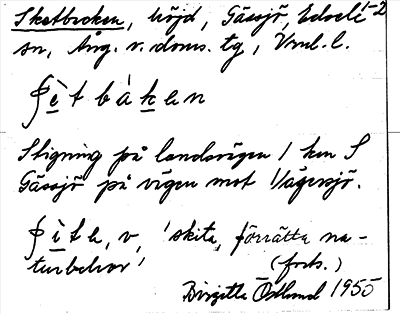 Sketbacken, höjd, Gässjö, Edsele 1-2
sn, Ång. v. doms. tg, Vnml. l.
ʃètbàkan
Stigning på landsvägen 1 km S
Gässjö på vägen mot Vägersjö.
ʃìta, v, 'skita, förrätta na-
turbehov'
(forts.)
Birgitta Östlund 1955